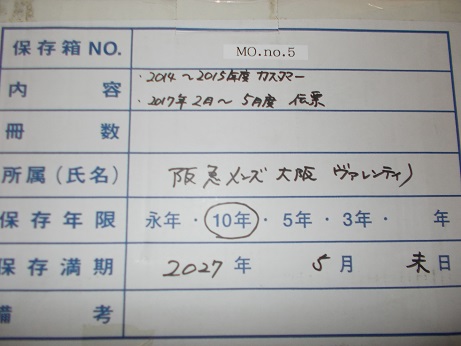 保存箱NO. MO.no.5
内容 ・2014～2015年度 カスタマー
・2017年2月～5月度 伝票
冊数
所属(氏名) 阪急メンズ大阪 ヴァレンティノ
保存年限 永年・10年・5年・3年・ 年
保存満期 2027年 5月 末日
備考